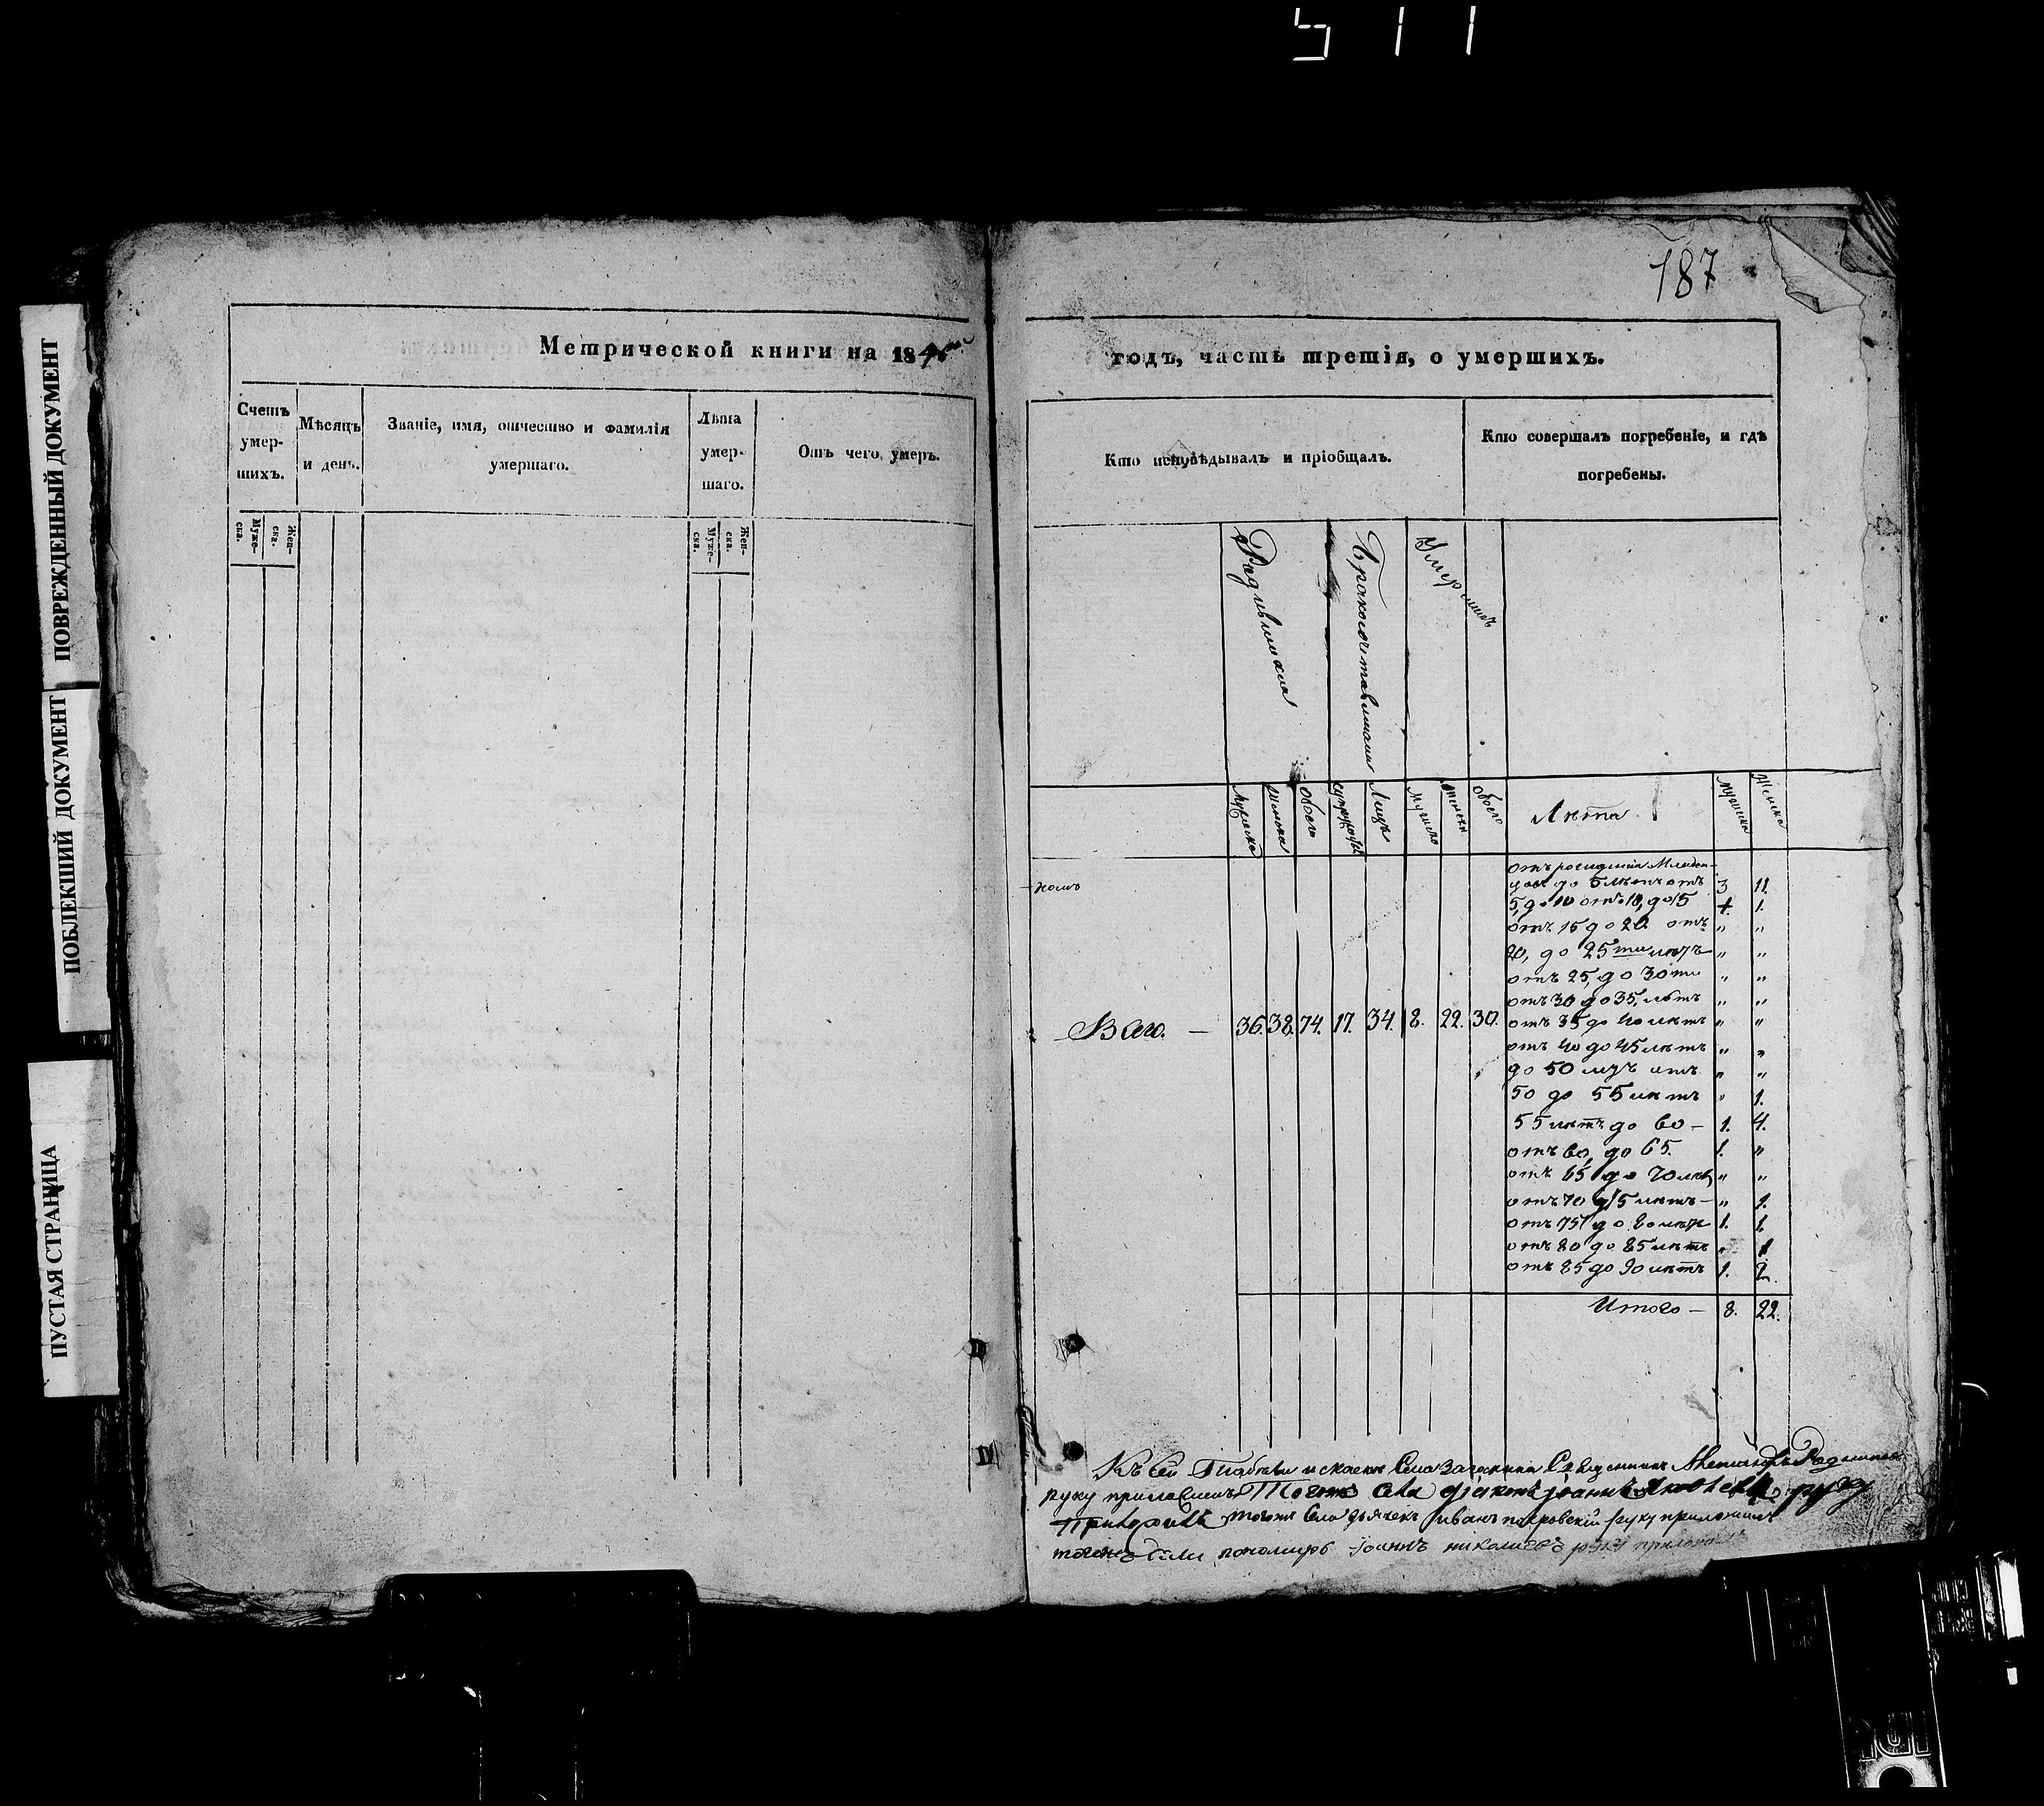 511
ПОВРЕЖДЕННЫЙ ДОКУМЕНТ
ПОБЛЕКШИЙ ДОКУМЕНТ
ПУСТАЯ СТРАНИЦА
187
Метрической книги на 184
годъ, часть третія, о умершихъ.
Счетъ умер-шихъ.
Мѣсяцъ и день.
Званіе, имя, отчество и фамилія умершаго.
Лѣта умер-шаго.
Отъ чего умеръ.
Муже-ска.
Жен-ска.
Муже-ска.
Жен-ска.
Кто исповѣдывалъ и пріобщалъ.
Кто совершалъ погребеніе, и гдѣ погребены.
Умершихъ
Мужеска
Женска
Обоего
Лицъ
Обоего
Лѣта
Мужеска
Женска
отъ рожденія Младен-
до 5 лѣтъ отъ 3 11.
5, до 10 отъ 10, до 15 1.
отъ 15 до 20 отъ " "
20, до 25ти лѣтъ " "
отъ 25, до 30ти " "
отъ 30 до 35, лѣтъ " "
Всего. — 36. 38. 74. 17. 34. 8. 22. 30. отъ 35 до 40 лѣтъ " "
отъ 40 до 45 лѣтъ " "
до 50 отъ " "
50 до 55 лѣтъ " 1.
55 лѣтъ до 60 — 1. 4.
отъ 60, до 65. 1. "
отъ 65 до 70 " "
отъ 70 лѣтъ — " 1.
отъ 75 до 80 лѣтъ 1. 1.
отъ 80 до 85 лѣтъ " 1
отъ 85 до 90 лѣтъ 1. 2.
Итого — 8. 22.
Къ сей Села
руку приложилъ Тогожъ села діаконъ руку
Приложилъ тогожъ села дьячекъ иванъ покровскій руку приложилъ
тогожъ села пономарь іоаннъ николаевъ руку приложилъ